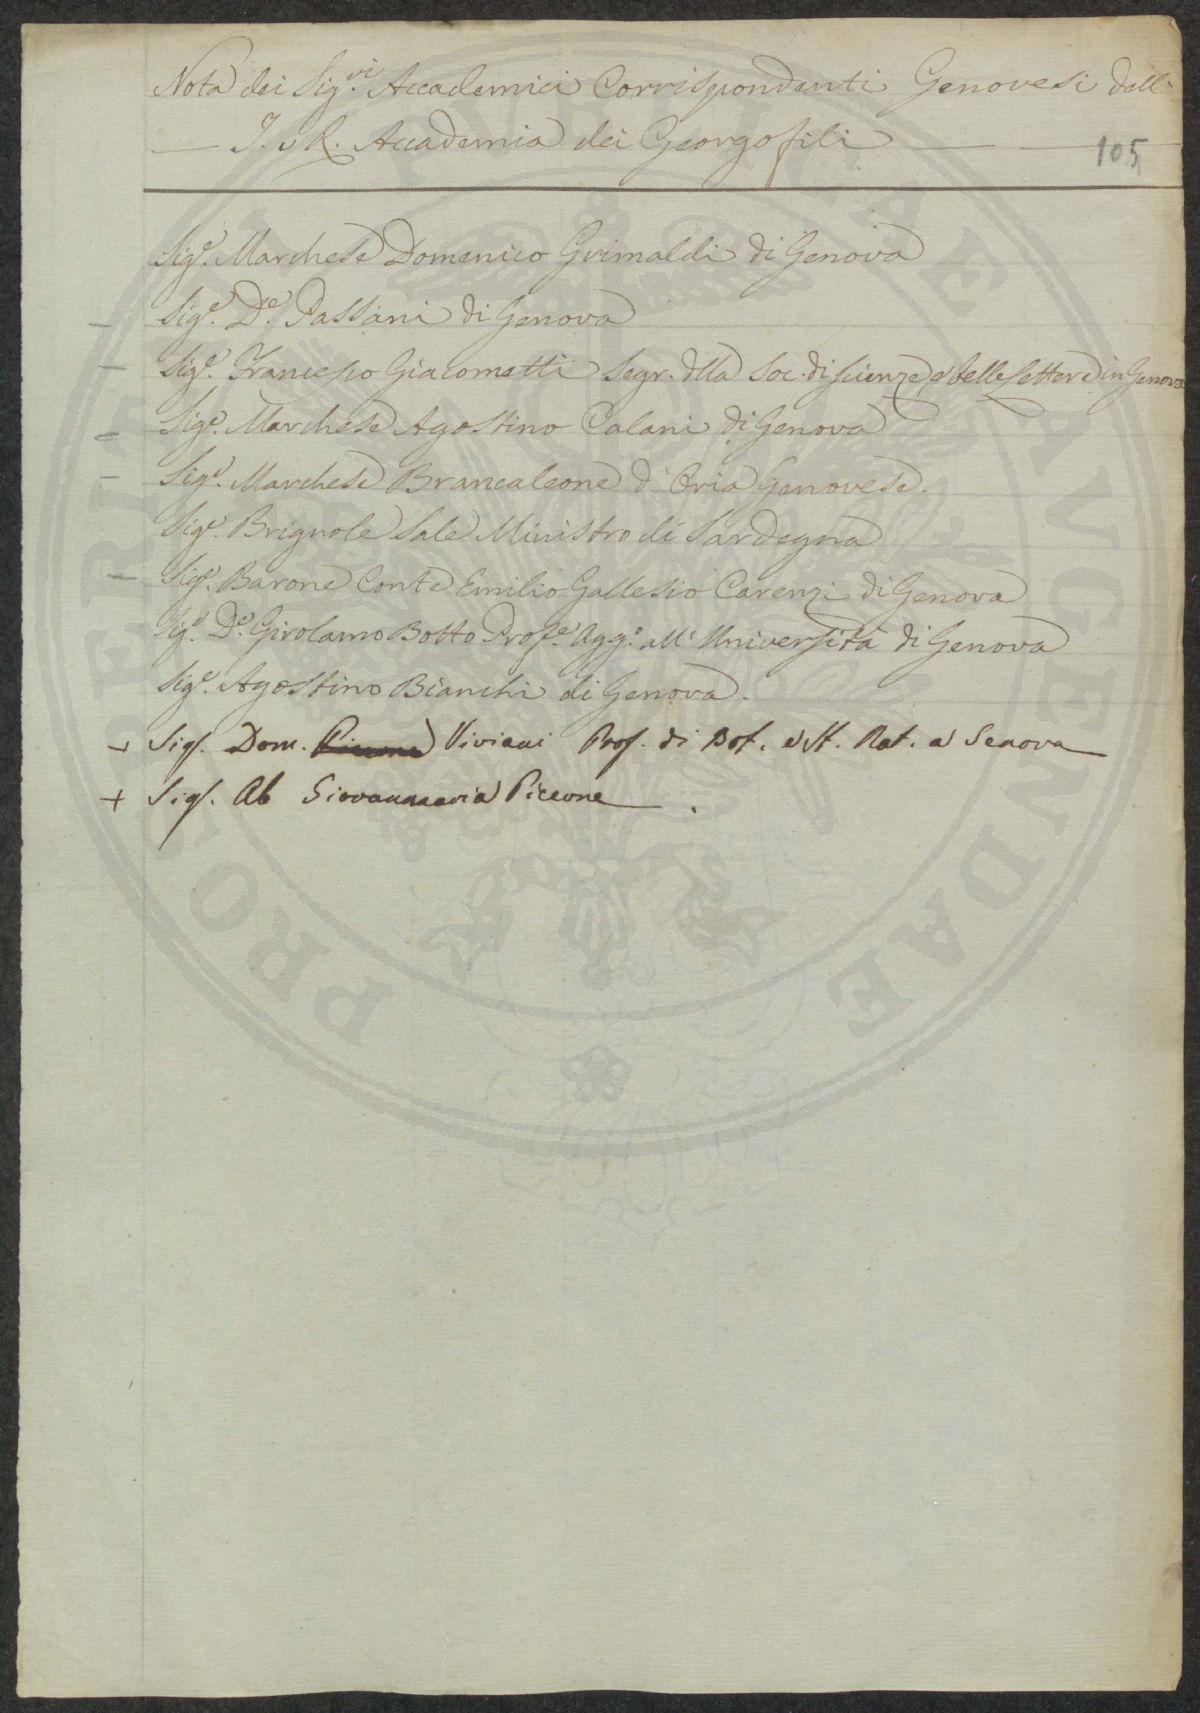 Nota dei Sig.ri Accademici Corrispondenti Genovesi dell'
I. e R. Accademia dei Georgofili
105
Sig.e Marchese Domenico Grimaldi di Genova
Sig.e D.e Passani di Genova
Sig.e Francesco Giacometti Segr. dlla Soc. di scienze e belle Lettere in Genova
Sig.e Marchese Agostino Calani di Genova
Sig.e Marchese Brancaleone d'Oria Genovese.
Sig.e Brignole Sale Ministro di Sardegna
Sig.e Barone Conte Emilio Gallesio Carenzi di Genova
Sig.e D.e Girolamo Botto Prof.e Agg.o all'Università di Genova
Sig.e Agostino Bianchi di Genova.
Sig. Dom. Picone Viviani Prof. di Bot. e St. Nat. a Genova
+ Sig. Ab Giovanmaria Piccone.
PROSPERITATI PUBLICAE AUGENDAE